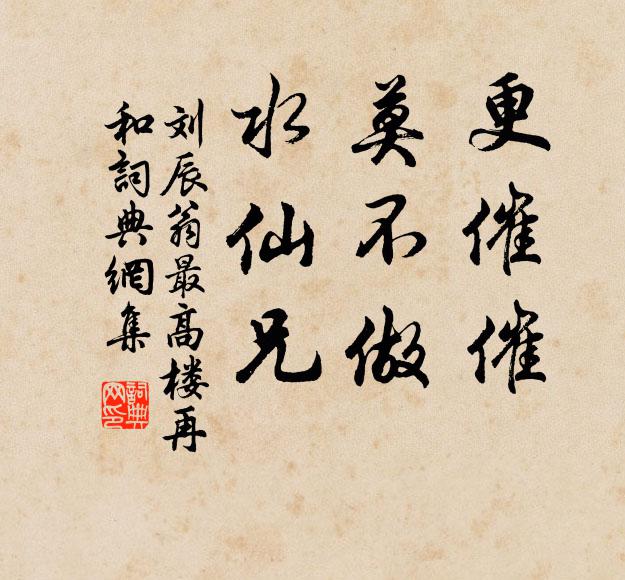 更催催
莫不做
水仙兄
刘辰翁最高楼再
和詞典網集
詞典
网印